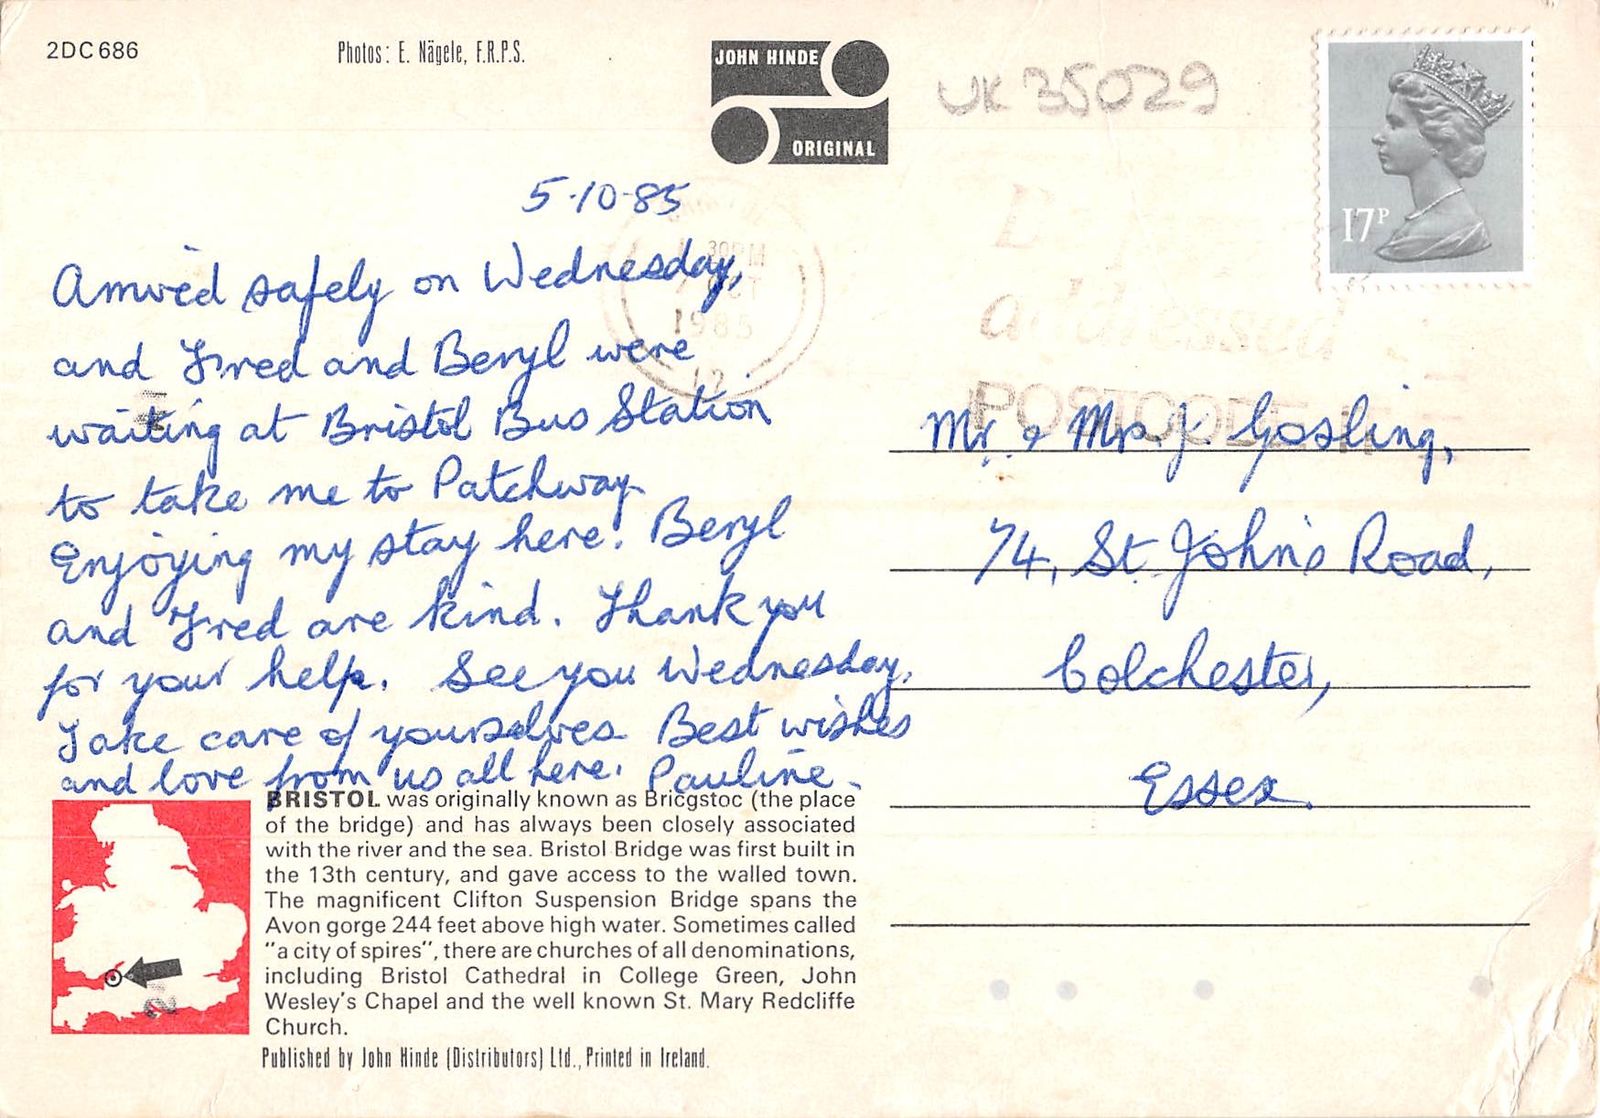 2DC686
Photos: E. Nägele, F.R.P.S.
JOHN HINDE
ORIGINAL
UK 35029
17P
5-10-85
Arrived safely on Wednesday,
and Fred and Beryl were
waiting at Bristol Bus Station
to take me to Patchway.
Enjoying my stay here. Beryl
and Fred are kind. Thank you
for your help. See you Wednesday.
Take care of yourselves. Best wishes
and love from us all here. Pauline.
OCT
1985
12
addressed
POSTCODE
Mr. & Mrs. J. Gosling,
74, St. John's Road,
Colchester,
Essex.
BRISTOL was originally known as Bricgstoc (the place
of the bridge) and has always been closely associated
with the river and the sea. Bristol Bridge was first built in
the 13th century, and gave access to the walled town.
The magnificent Clifton Suspension Bridge spans the
Avon gorge 244 feet above high water. Sometimes called
"a city of spires", there are churches of all denominations,
including Bristol Cathedral in College Green, John
Wesley's Chapel and the well known St. Mary Redcliffe
Church.
Published by John Hinde (Distributors) Ltd., Printed in Ireland.